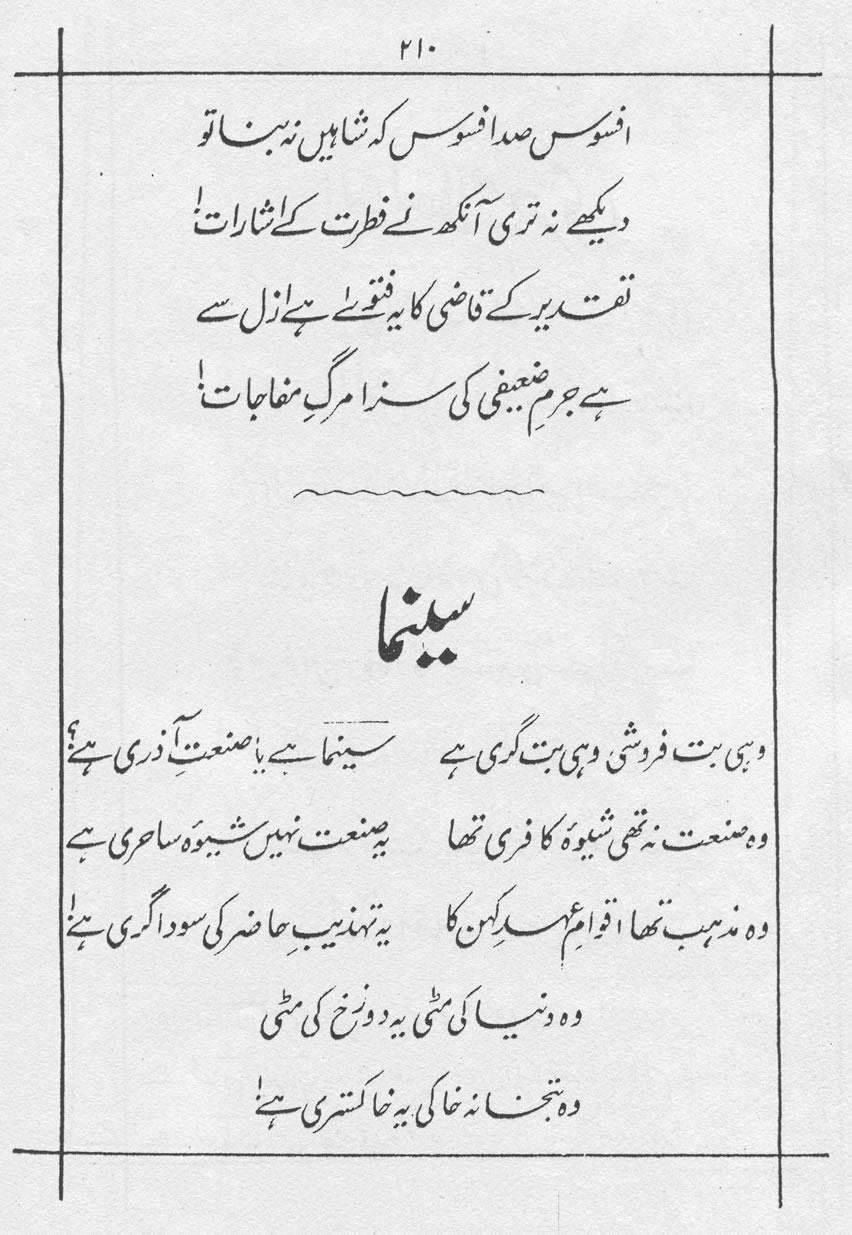 ۲۱۰
افسوس صد افسوس کہ شاہیں نہ بنا تو
دیکھے نہ تری آنکھ نے فطرت کے اشارات!
تقدیر کے قاضی کا یہ فتویٰ ہے ازل سے
ہے جرمِ ضعیفی کی سزا مرگِ مفاجات!
سینما
وہی بت فروشی وہی بت گری ہے سینما ہے یا صنعتِ آذری ہے؟
وہ صنعت نہ تھی شیوۂ کافری تھا یہ صنعت نہیں شیوۂ ساحری ہے
وہ مذہب تھا اقوامِ عہدِ کہن کا یہ تہذیبِ حاضر کی سوداگری ہے!
وہ دنیا کی مٹی یہ دوزخ کی مٹی
وہ بتخانہ خاکی یہ خاکستری ہے!